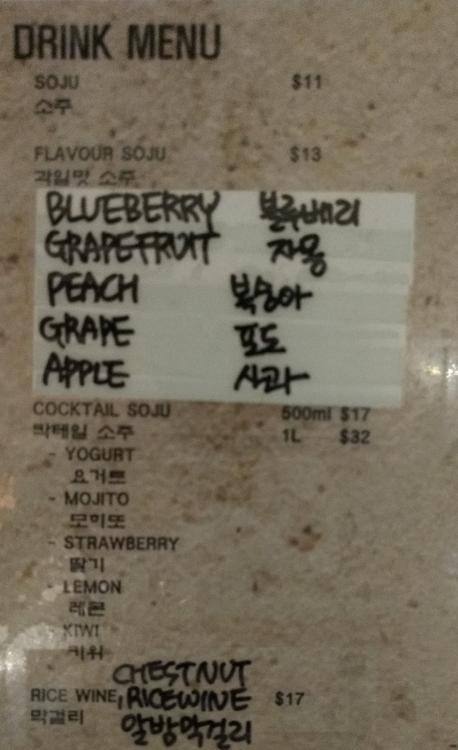 DRINK MENU
SOJU $11
소주
FLAVOUR SOJU $13
과일맛 소주
BLUEBERRY 블루베리
GRAPEFRUIT 자몽
PEACH 복숭아
GRAPE 포도
APPLE 사과
COCKTAIL SOJU 500ml $17
칵테일 소주 1L $32
- YOGURT
요거트
- MOJITO
모히또
- STRAWBERRY
딸기
- LEMON
레몬
KIWI
키위
CHESTNUT
RICE WINE, RICEWINE $17
막걸리 알밤막걸리